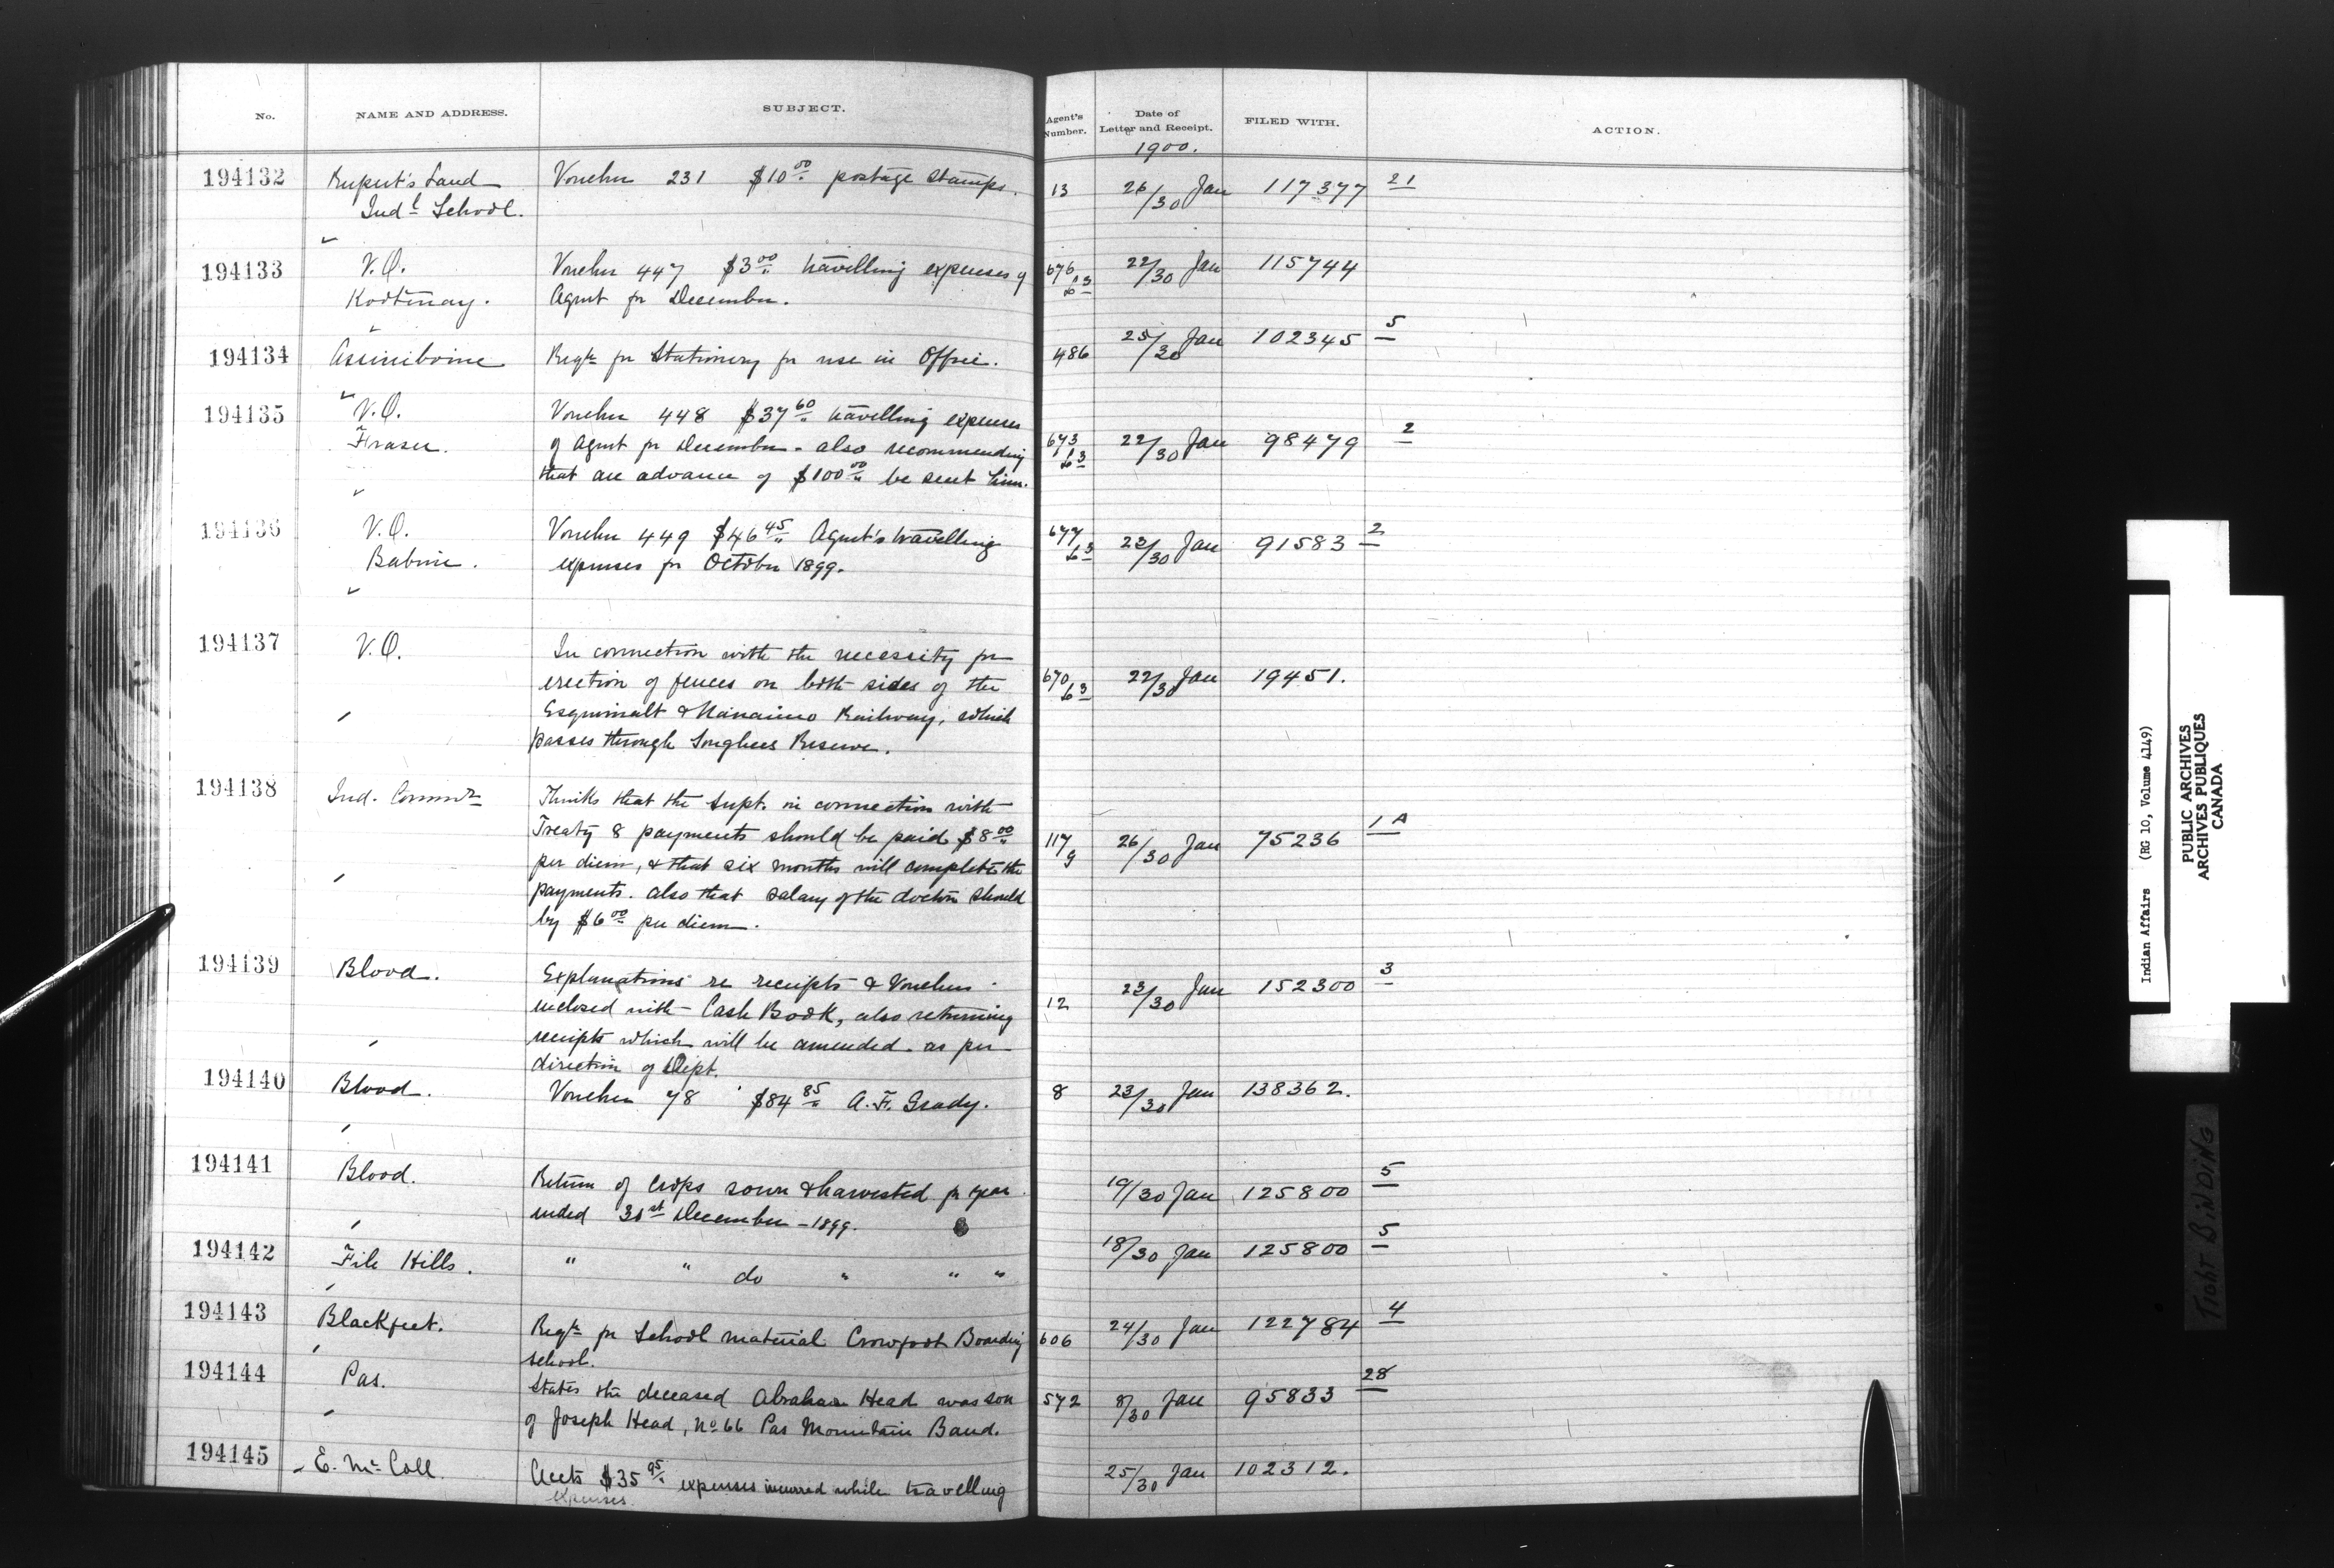 No. NAME AND ADDRESS. SUBJECT. Agent's Number. Date of Letter and Receipt. FILED WITH. ACTION.
1900.
194132 Rupert's Land Voucher 231 $10 00 postage stamps. 13 26/30 Jan 117377 21
Indl School.
194133 V.O. Voucher 447 $3 00 travelling expenses of 676 63 22/30 Jan 115744
Kootenay. Agent for December.
194134 Assiniboine Reqn for Stationery for use in Office. 486 25/30 Jan 102345 5
194135 V.O. Voucher 448 $37 60 travelling expenses
Fraser. of Agent for December - also recommending 673 63 22/30 Jan 98479 2
that an advance of $100 00 be sent him.
194136 V.O. Voucher 449 $46 45 Agent's travelling 677 63 23/30 Jan 91583 2
Babine. expenses for October 1899.
194137 V.O. In connection with the necessity for
erection of fences on both sides of the 670 63 22/30 Jan 19451.
Esquimalt & Nanaimo Railway, which
passes through Songhees Reserve.
194138 Ind. Commr Thinks that the Supt. in connection with
Treaty 8 payments should be paid $8 00 117/9 26/30 Jan 75236 1 A
per diem, & that six months will complete the
payments. also that salary of the doctor should
by $6 00 per diem.
194139 Blood. Explanations re receipts & Vouchers
inclosed with Cash Book, also returning 12 23/30 Jan 152300 3
receipts which will be amended as per
direction of Dept.
194140 Blood. Voucher 78 $84 85 A. F. Grady. 8 23/30 Jan 138362.
194141 Blood. Return of crops sown & harvested for year 19/30 Jan 125800 5
ended 31st December - 1899.
194142 File Hills. " " do " " " 18/30 Jan 125800 5
194143 Blackfeet. Reqn for School material Crowfoot Boarding 606 24/30 Jan 122784 4
school.
194144 Pas. States the deceased Abraham Head was son 572 8/30 Jan 95833 28
of Joseph Head, No 66 Pas Mountain Band.
194145 E. McColl Accts $35 95 expenses incurred while travelling 25/30 Jan 102312.
expenses.
Indian Affairs (RG 10, Volume 4149)
PUBLIC ARCHIVES
ARCHIVES PUBLIQUES
CANADA
TIGHT BINDING